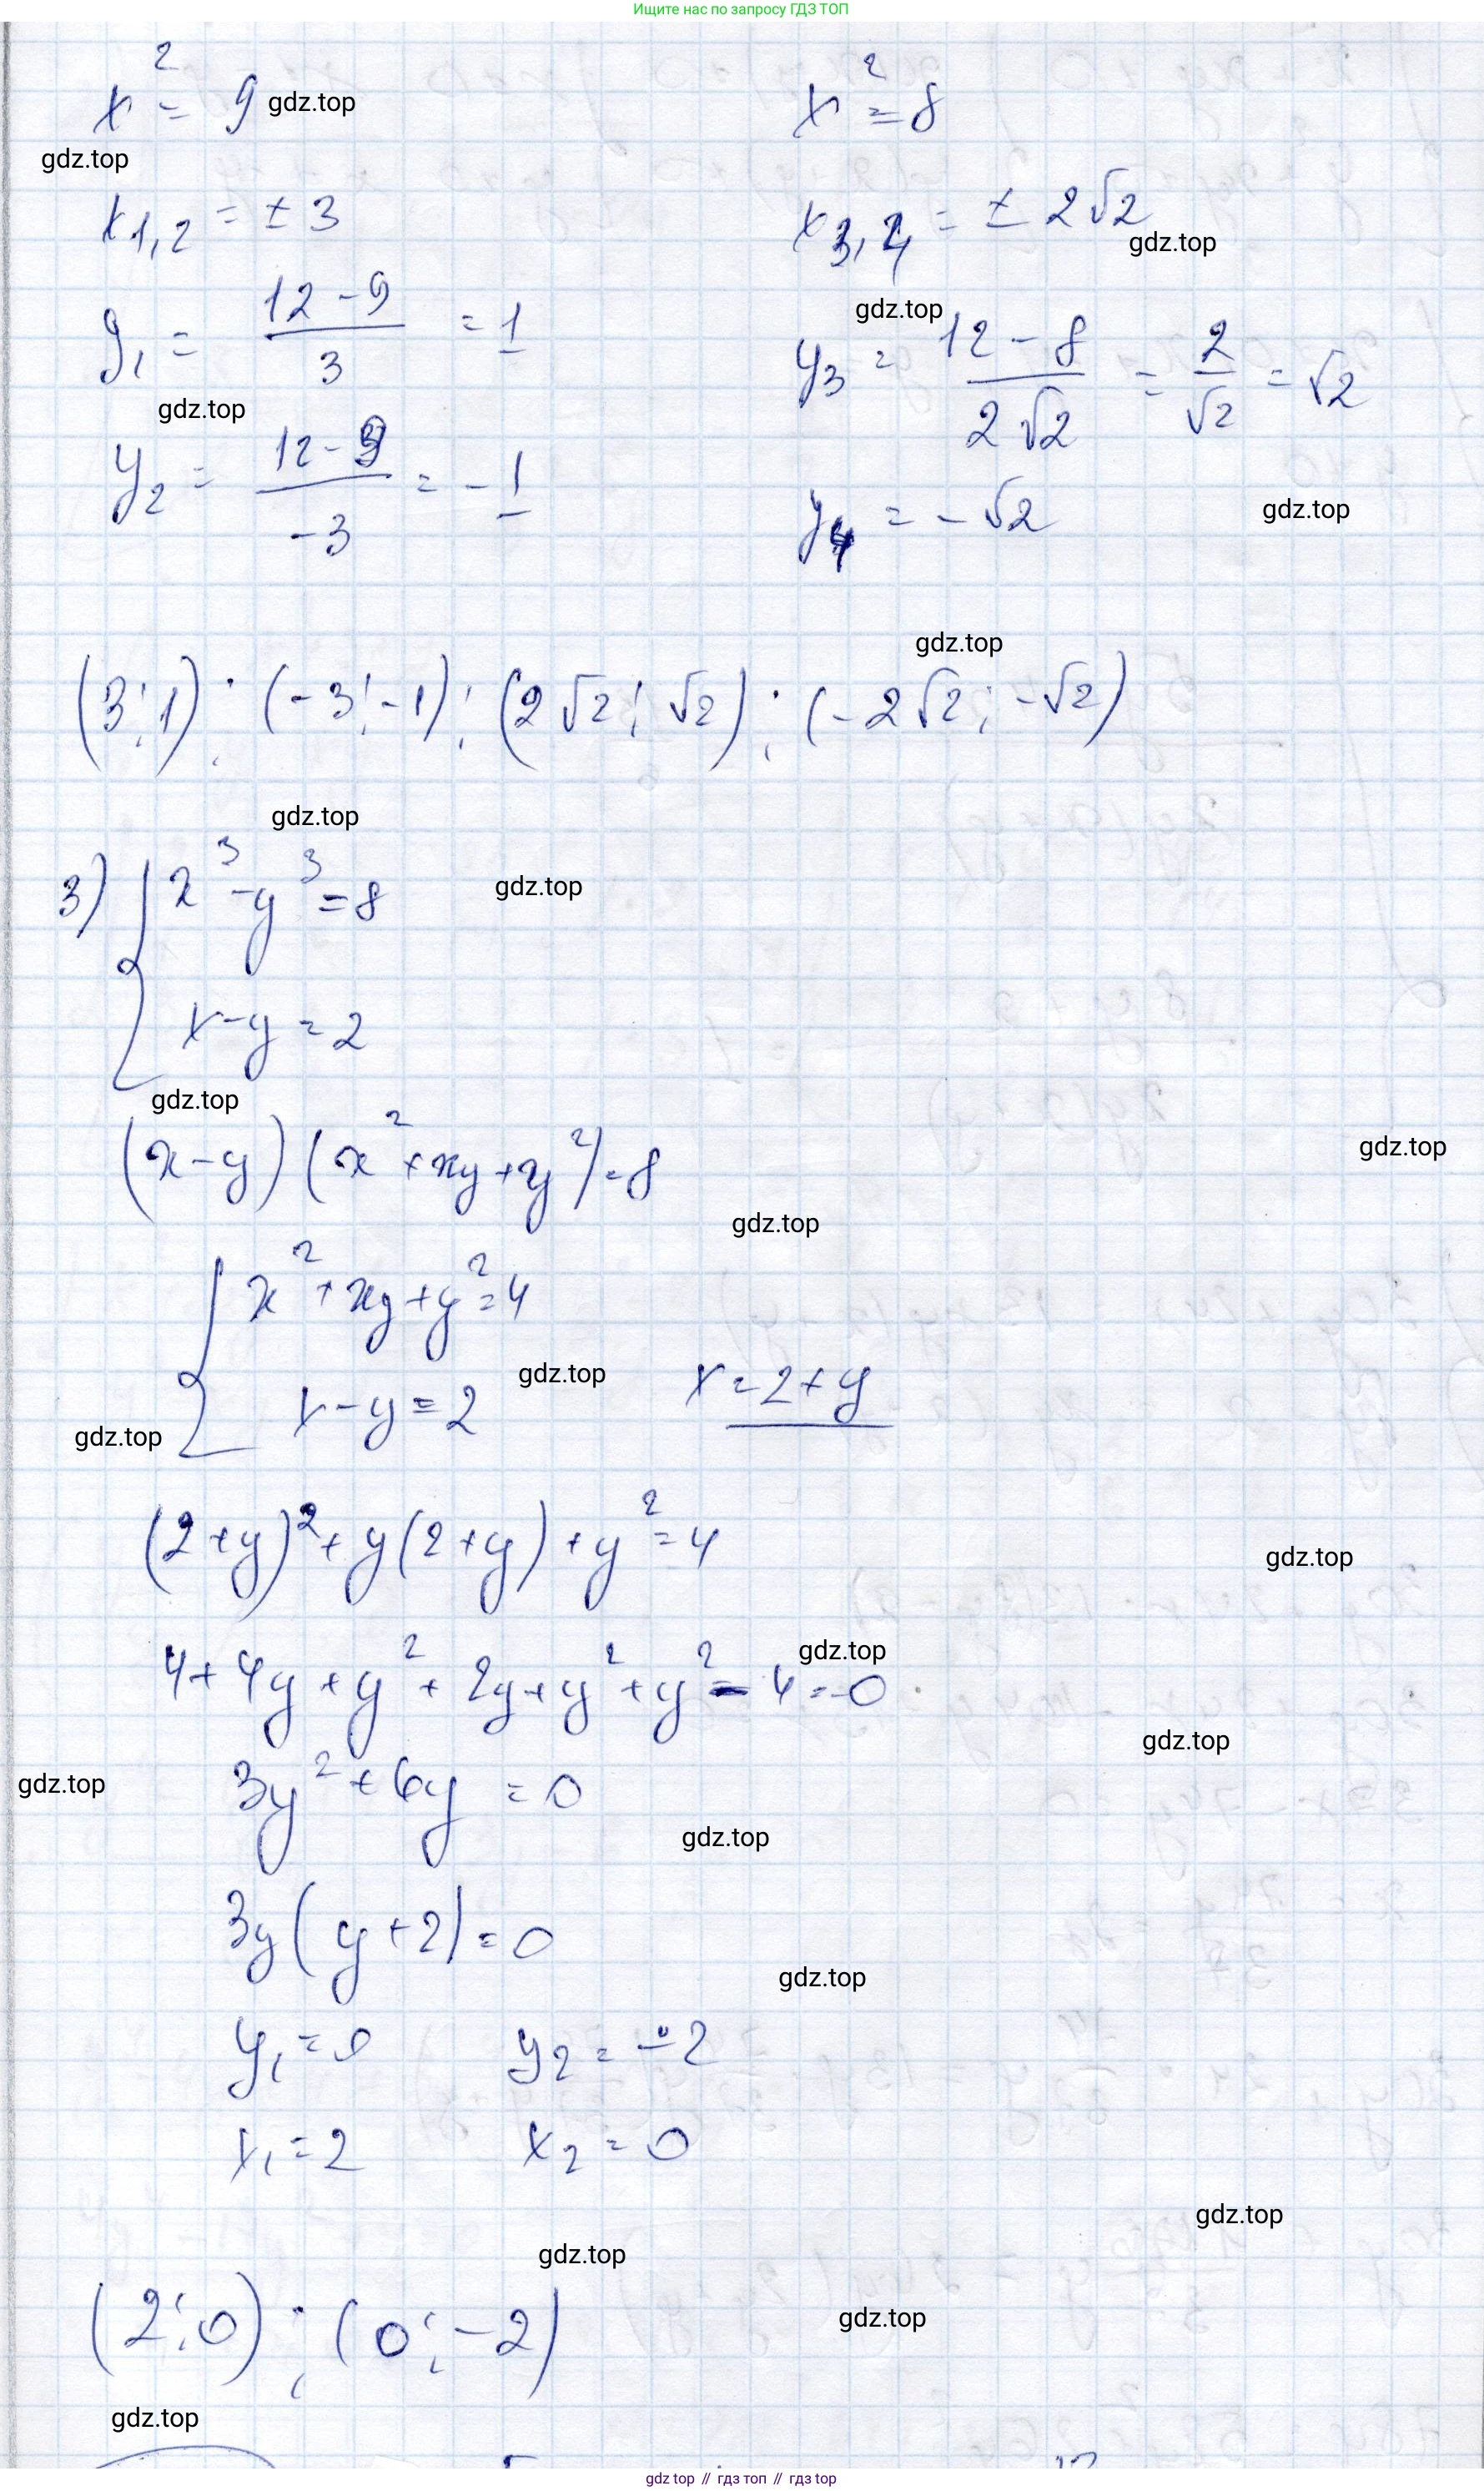 Ищите нас по запросу ГДЗ ТОП
x² = 9 gdz.top
x² = 8
gdz.top
x₁,₂ = ± 3
x₃,₄ = ± 2√2
gdz.top
y₁ = (12 - 9)/3 = 1
gdz.top
y₃ = (12 - 8)/(2√2) = 2/√2 = √2
gdz.top
y₂ = (12 - 9)/(-3) = -1
y₄ = -√2
gdz.top
gdz.top
(3; 1); (-3; -1); (2√2; √2); (-2√2; -√2)
gdz.top
3) { x³ - y³ = 8
gdz.top
x - y = 2
gdz.top
(x - y)(x² + xy + y²) = 8
gdz.top
gdz.top
{ x² + xy + y² = 4
x - y = 2
gdz.top
x = 2 + y
gdz.top
(2 + y)² + y(2 + y) + y² = 4
gdz.top
4 + 4y + y² + 2y + y² + y² - 4 = 0
gdz.top
gdz.top
3y² + 6y = 0
gdz.top
gdz.top
3y(y + 2) = 0
gdz.top
y₁ = 0 y₂ = -2
x₁ = 2 x₂ = 0
gdz.top
gdz.top
(2; 0); (0; -2)
gdz.top
gdz.top
gdz top // гдз топ // гдз top